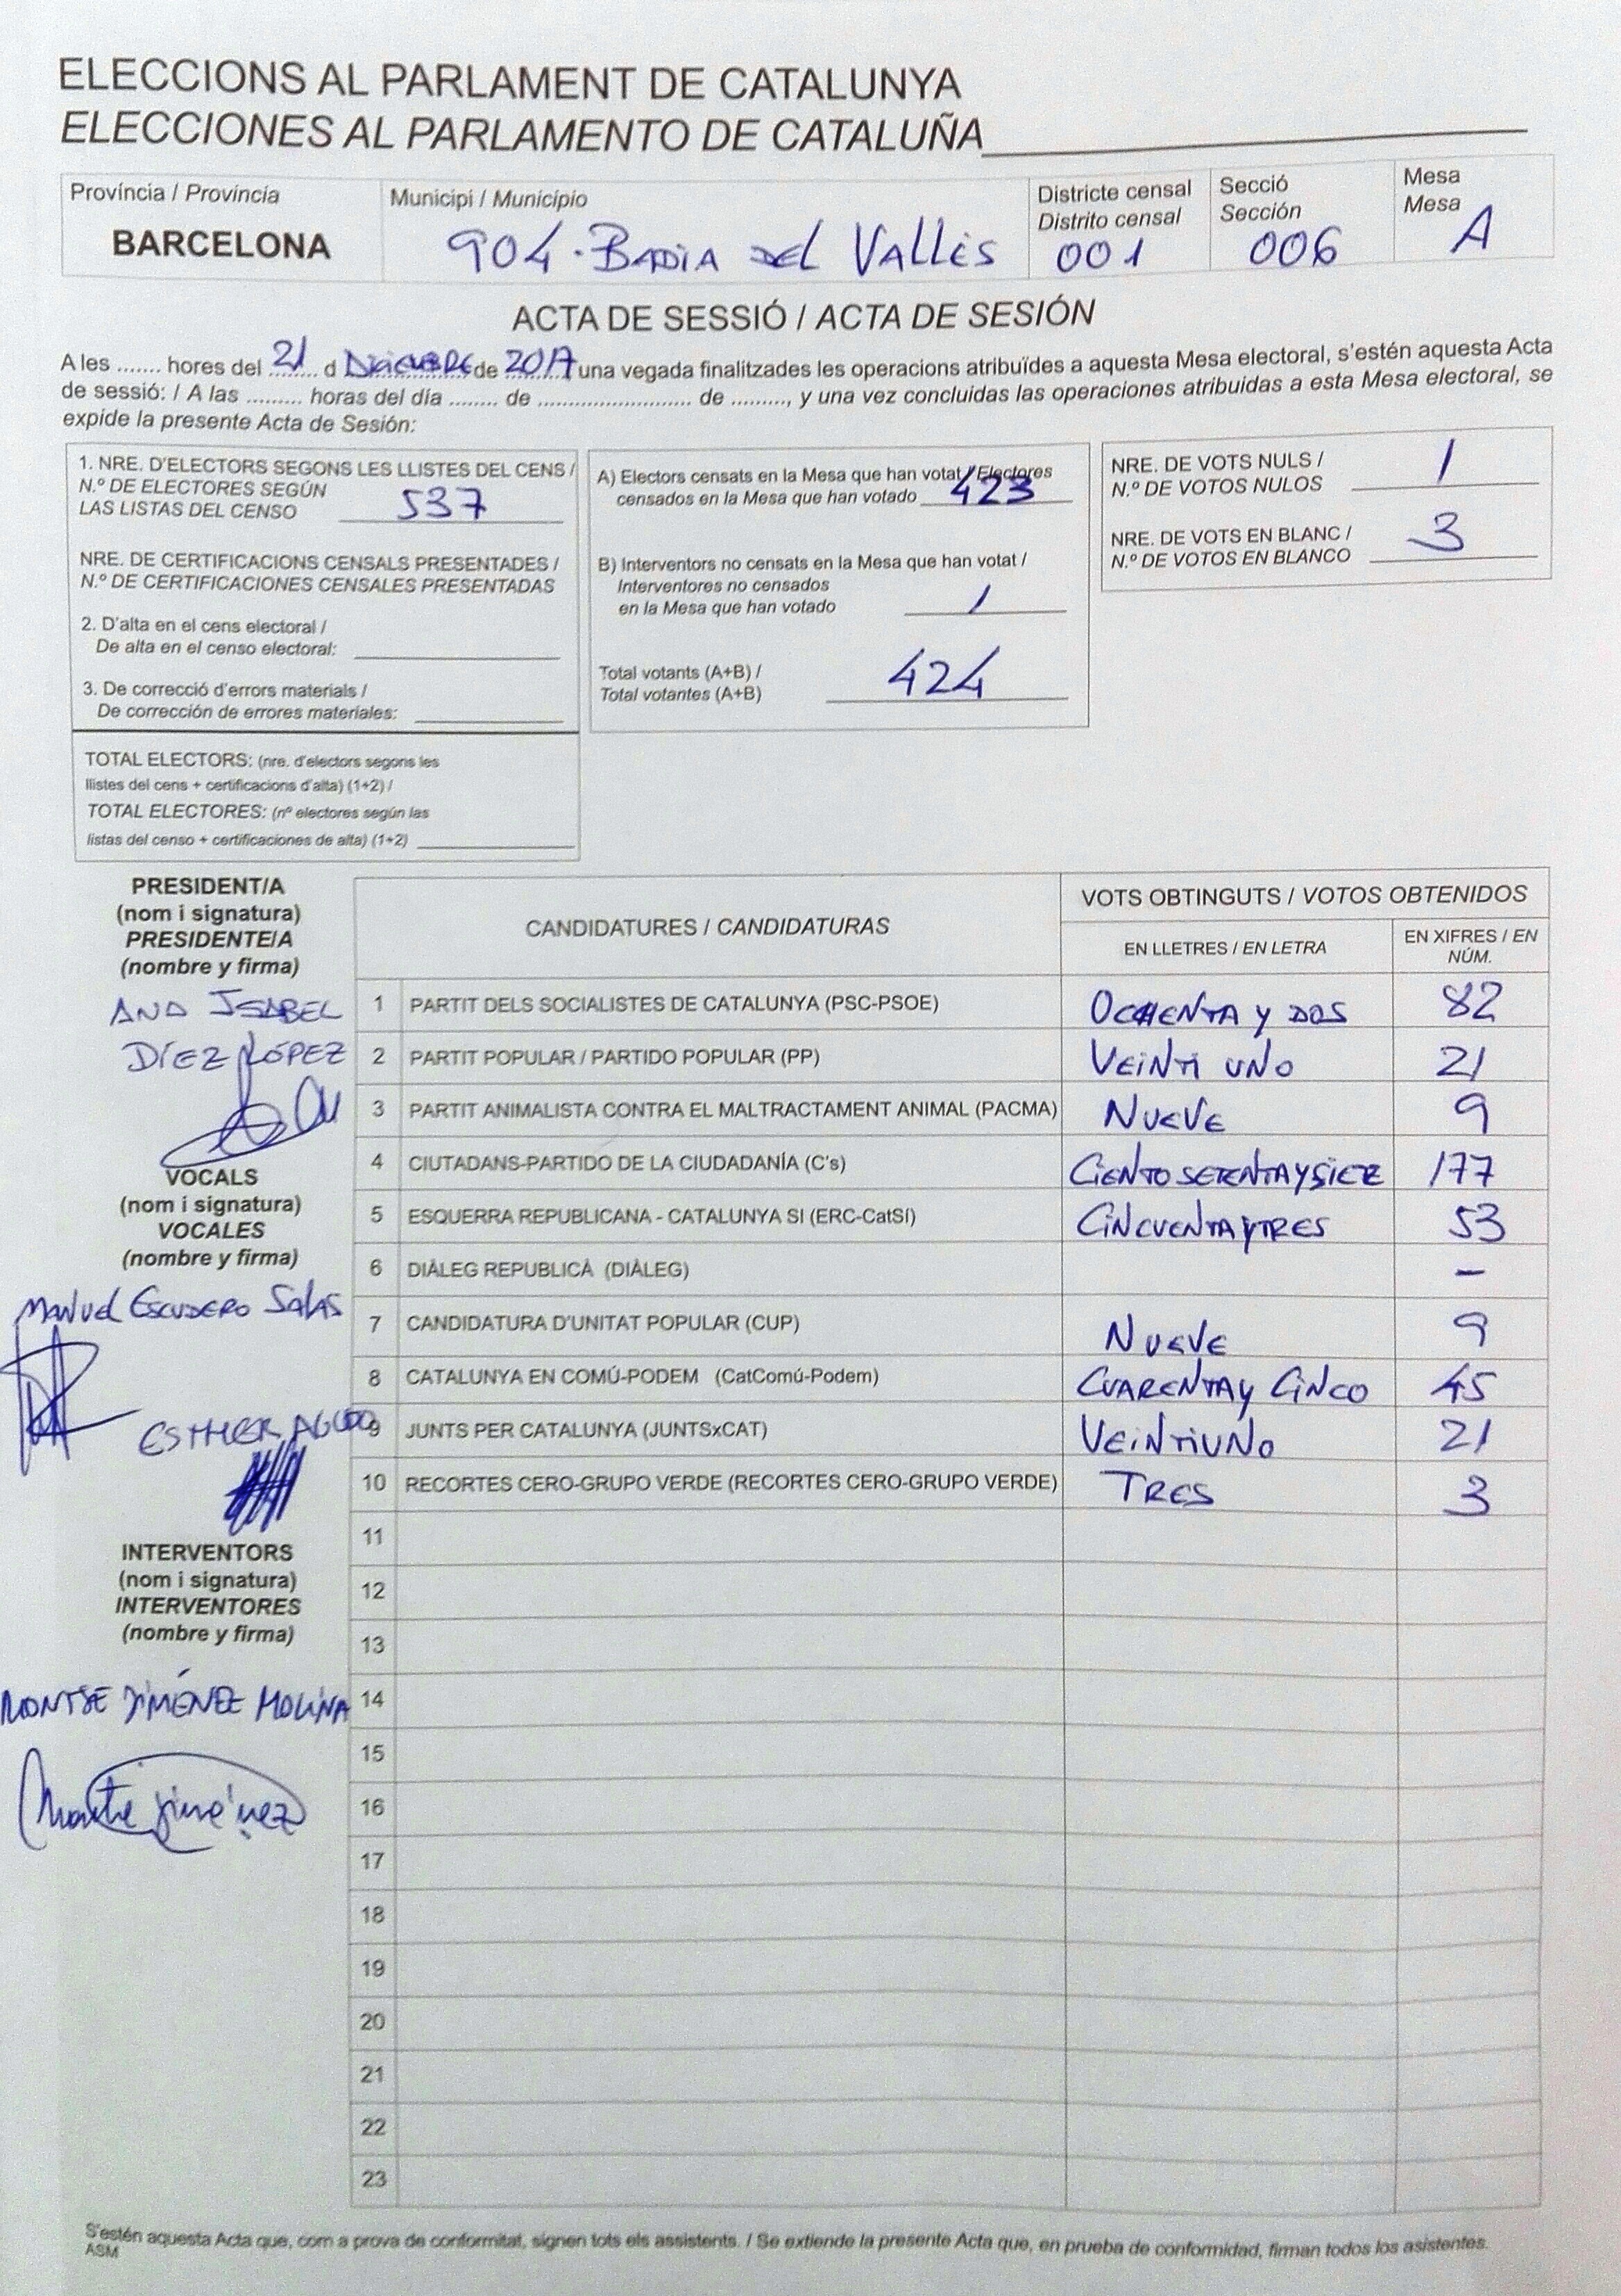 ELECCIONS AL PARLAMENT DE CATALUNYA
ELECCIONES AL PARLAMENTO DE CATALUÑA
Província / Provincia
BARCELONA
Municipi / Municipio
904 - BADIA DEL VALLÈS
Districte censal
Distrito censal
001
Secció
Sección
006
Mesa
Mesa
A
ACTA DE SESSIÓ / ACTA DE SESIÓN
A les ....... hores del 21 d DICIEMBRE de 2017 una vegada finalitzades les operacions atribuïdes a aquesta Mesa electoral, s'estén aquesta Acta
de sessió: / A las ......... horas del día ........ de ......................... de ........., y una vez concluidas las operaciones atribuidas a esta Mesa electoral, se
expide la presente Acta de Sesión:
1. NRE. D'ELECTORS SEGONS LES LLISTES DEL CENS /
N.º DE ELECTORES SEGÚN
LAS LISTAS DEL CENSO 537
NRE. DE CERTIFICACIONS CENSALS PRESENTADES /
N.º DE CERTIFICACIONES CENSALES PRESENTADAS
2. D'alta en el cens electoral /
De alta en el censo electoral:
3. De correcció d'errors materials /
De corrección de errores materiales:
TOTAL ELECTORS: (nre. d'electors segons les
llistes del cens + certificacions d'alta) (1+2) /
TOTAL ELECTORES: (nº electores según las
listas del censo + certificaciones de alta) (1+2)
A) Electors censats en la Mesa que han votat / Electores
censados en la Mesa que han votado 423
B) Interventors no censats en la Mesa que han votat /
Interventores no censados
en la Mesa que han votado 1
Total votants (A+B) /
Total votantes (A+B) 424
NRE. DE VOTS NULS /
N.º DE VOTOS NULOS 1
NRE. DE VOTS EN BLANC /
N.º DE VOTOS EN BLANCO 3
PRESIDENT/A
(nom i signatura)
PRESIDENTE/A
(nombre y firma)
ANA ISABEL
DÍEZ LÓPEZ
VOCALS
(nom i signatura)
VOCALES
(nombre y firma)
MANUEL ESCUDERO SALAS
ESTHER AGUDO
INTERVENTORS
(nom i signatura)
INTERVENTORES
(nombre y firma)
MONTSE JIMÉNEZ MOLINA
Montse Jiménez
CANDIDATURES / CANDIDATURAS
VOTS OBTINGUTS / VOTOS OBTENIDOS
EN LLETRES / EN LETRA
EN XIFRES / EN
NÚM.
1 PARTIT DELS SOCIALISTES DE CATALUNYA (PSC-PSOE) OCHENTA Y DOS 82
2 PARTIT POPULAR / PARTIDO POPULAR (PP) VEINTI UNO 21
3 PARTIT ANIMALISTA CONTRA EL MALTRACTAMENT ANIMAL (PACMA) NUEVE 9
4 CIUTADANS-PARTIDO DE LA CIUDADANÍA (C's) CIENTO SETENTA Y SIETE 177
5 ESQUERRA REPUBLICANA - CATALUNYA SI (ERC-CatSí) CINCUENTA Y TRES 53
6 DIÀLEG REPUBLICÀ (DIÀLEG) -
7 CANDIDATURA D'UNITAT POPULAR (CUP) NUEVE 9
8 CATALUNYA EN COMÚ-PODEM (CatComú-Podem) CUARENTA Y CINCO 45
9 JUNTS PER CATALUNYA (JUNTSxCAT) VEINTIUNO 21
10 RECORTES CERO-GRUPO VERDE (RECORTES CERO-GRUPO VERDE) TRES 3
11
12
13
14
15
16
17
18
19
20
21
22
23
S'estén aquesta Acta que, com a prova de conformitat, signen tots els assistents. / Se extiende la presente Acta que, en prueba de conformidad, firman todos los asistentes.
ASM